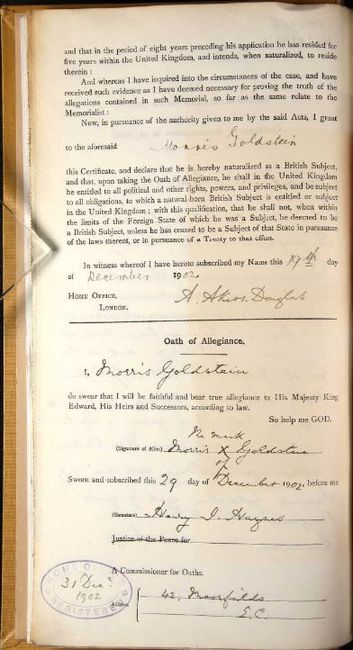 and that in the period of eight years preceding his application he has resided for
five years within the United Kingdom, and intends, when naturalized, to reside
therein :
And whereas I have inquired into the circumstances of the case, and have
received such evidence as I have deemed necessary for proving the truth of the
allegations contained in such Memorial, so far as the same relate to the
Memorialist :
Now, in pursuance of the authority given to me by the said Acts, I grant
to the aforesaid Morris Goldstein
this Certificate, and declare that he is hereby naturalized as a British Subject,
and that, upon taking the Oath of Allegiance, he shall in the United Kingdom
be entitled to all political and other rights, powers, and privileges, and be subject
to all obligations, to which a natural-born British Subject is entitled or subject
in the United Kingdom ; with this qualification, that he shall not, when within
the limits of the Foreign State of which he was a Subject, be deemed to be
a British Subject, unless he has ceased to be a Subject of that State in pursuance
of the laws thereof, or in pursuance of a Treaty to that effect.
In witness whereof I have hereto subscribed my Name this 19th day
of December 1902.
HOME OFFICE, A. Akers Douglas
LONDON.
Oath of Allegiance.
I, Morris Goldstein
do swear that I will be faithful and bear true allegiance to His Majesty King
Edward, His Heirs and Successors, according to law.
So help me GOD.
mark
(Signature of Alien) Morris X Goldstein
of
Sworn and subscribed this 29 day of December 1902, before me
(Signature) Henry
Justice of the Peace for
A Commissioner for Oaths.
42,
E.C.
HOME OFFICE
31 Dec
1902
REGISTERED